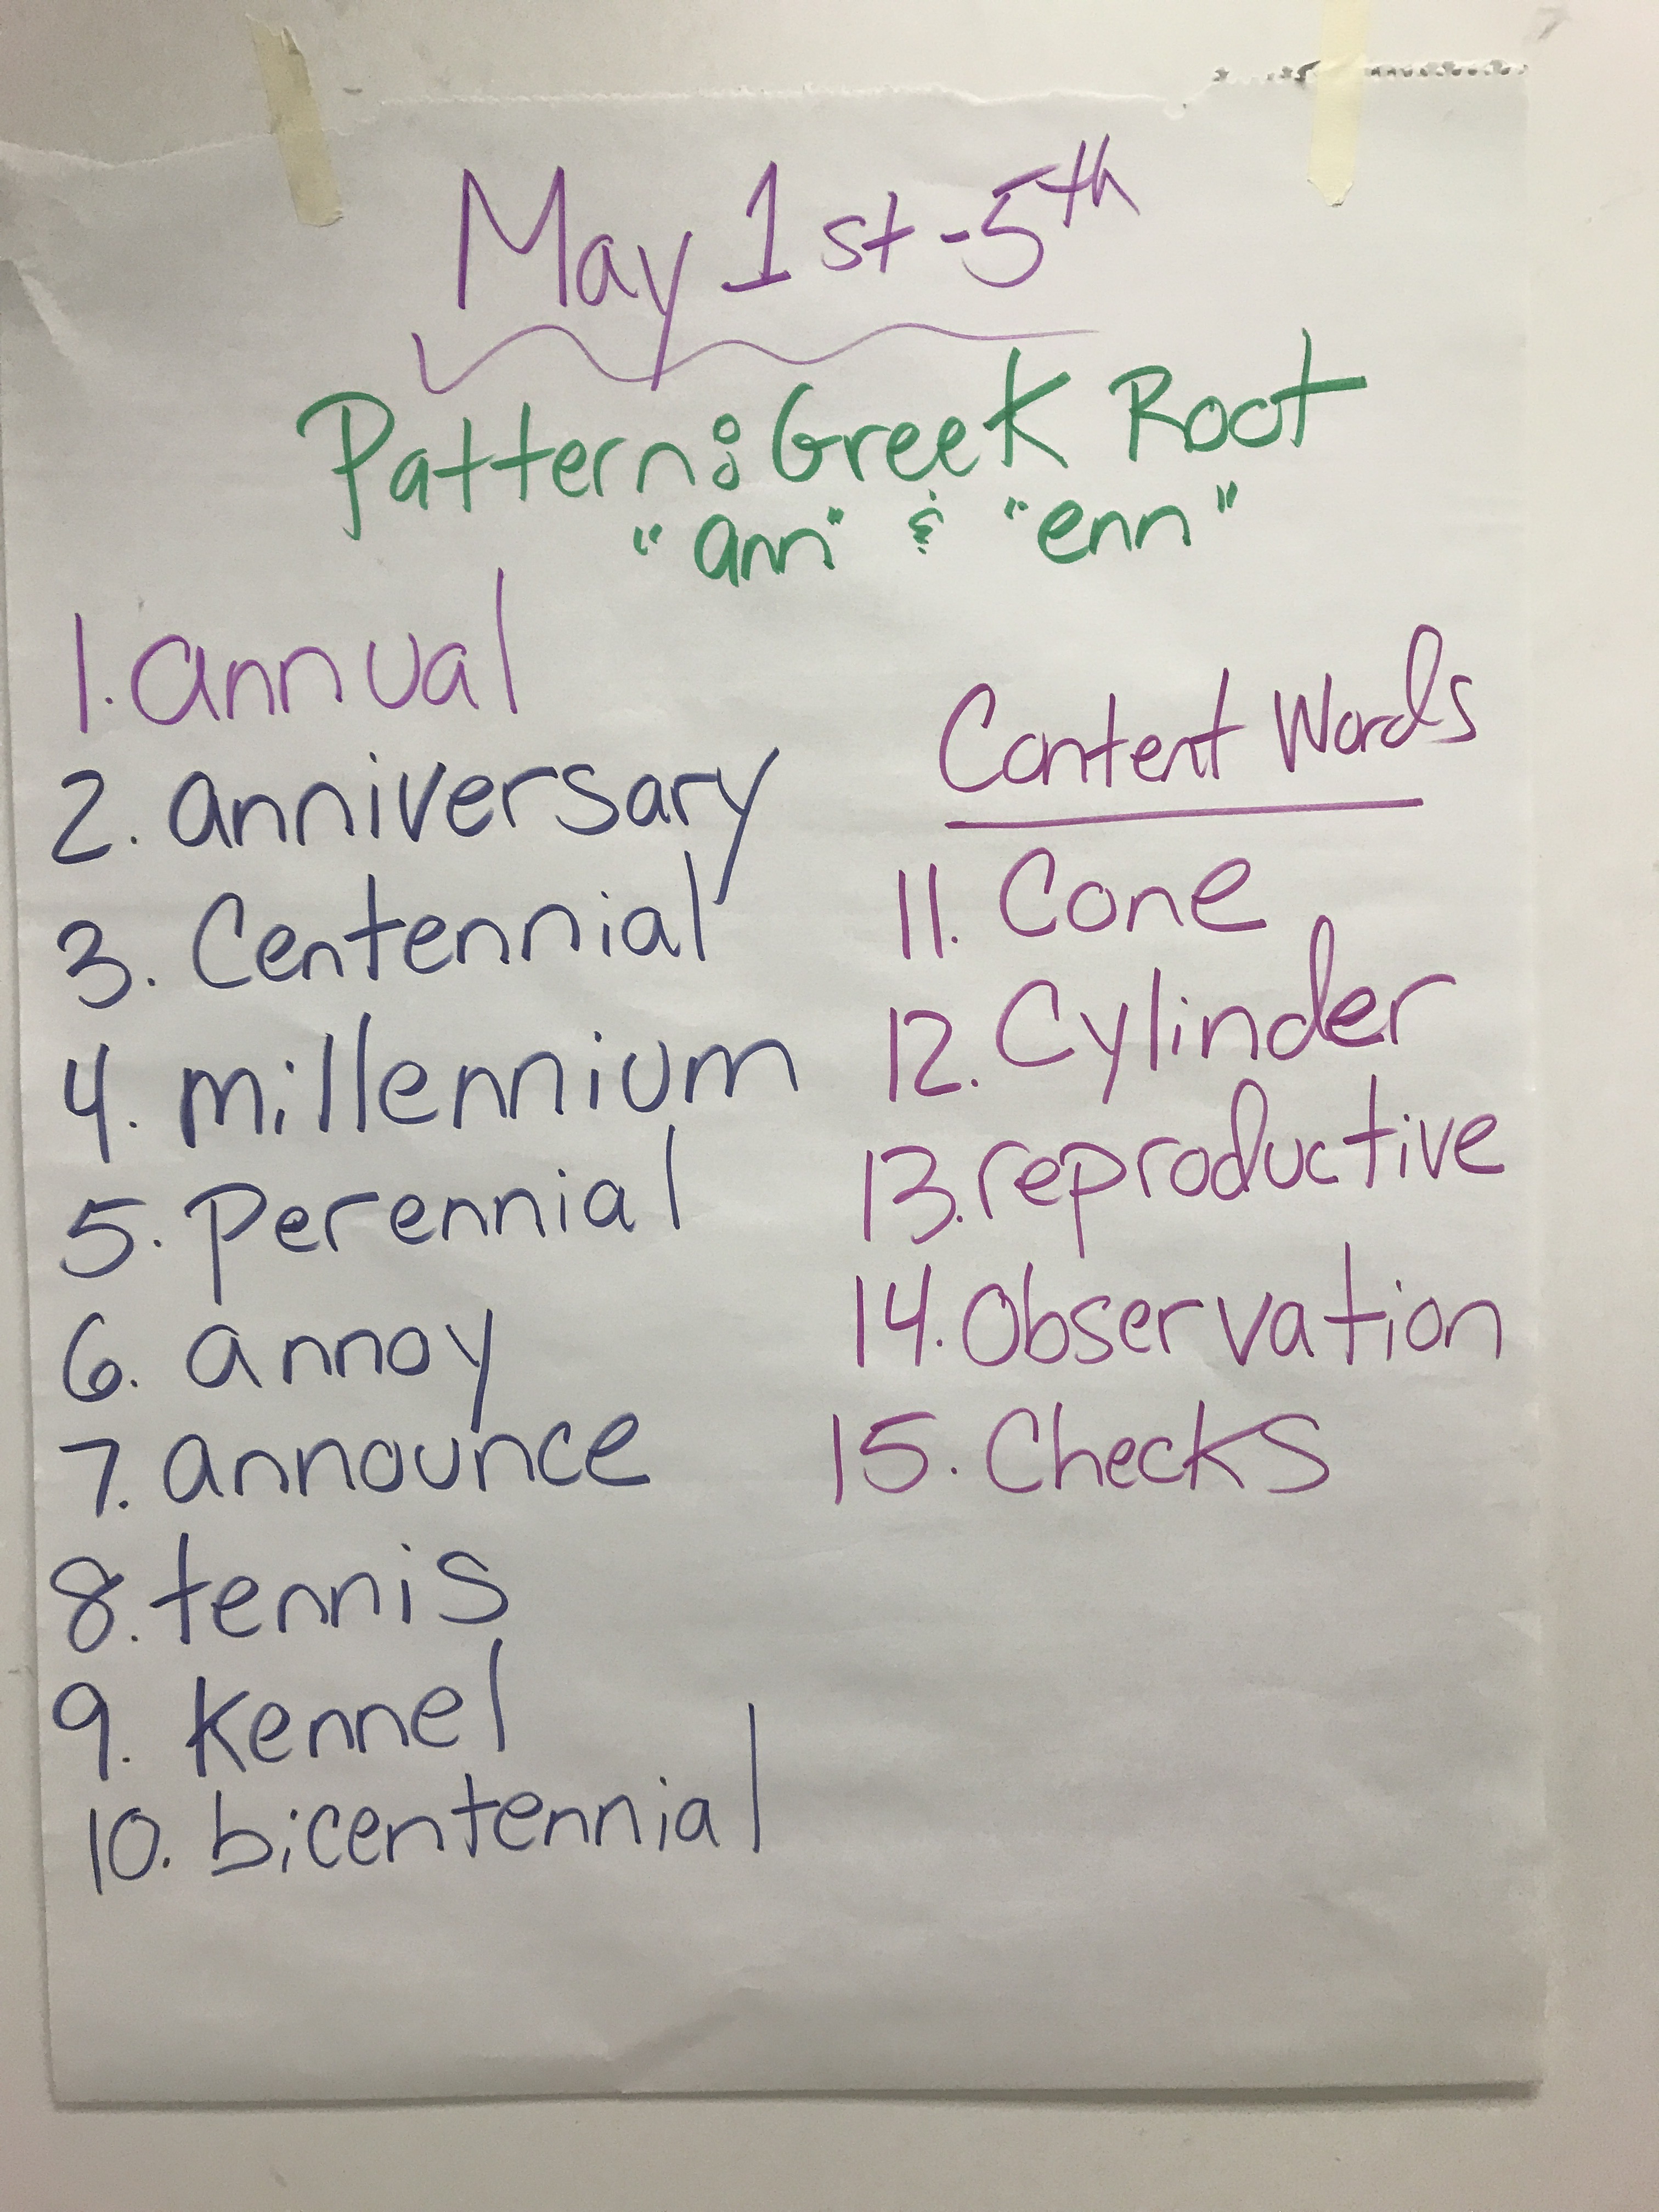 May 1st-5th
Pattern: Greek Root
"ann" & "enn"
1. annual
2. anniversary
3. Centennial
4. millennium
5. Perennial
6. annoy
7. announce
8. tennis
9. kennel
10. bicentennial
Content Words
11. Cone
12. Cylinder
13. reproductive
14. Observation
15. Checks